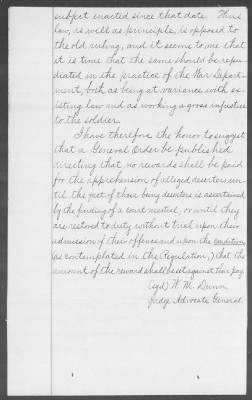 subject enacted since that date. Thus
law, as well as principle, is opposed to
the old ruling, and it seems to me that
it is time that the same should be repu-
diated in the practice of the War Depart-
ment, both as being at variance with ex-
isting law and as working a gross injustice
to the soldier.
I have therefore the honor to suggest
that a General Order be published
directing that no rewards shall be paid
for the apprehension of alleged deserters un-
til the fact of their being deserters is ascertained
by the finding of a court martial, or until they
are restored to duty without trial upon their
admission of their offence and upon the condition
(as contemplated in the Regulation,) that the
amount of the reward shall be set against their pay.
(Sgd) W. M. Dunn
Judge Advocate General